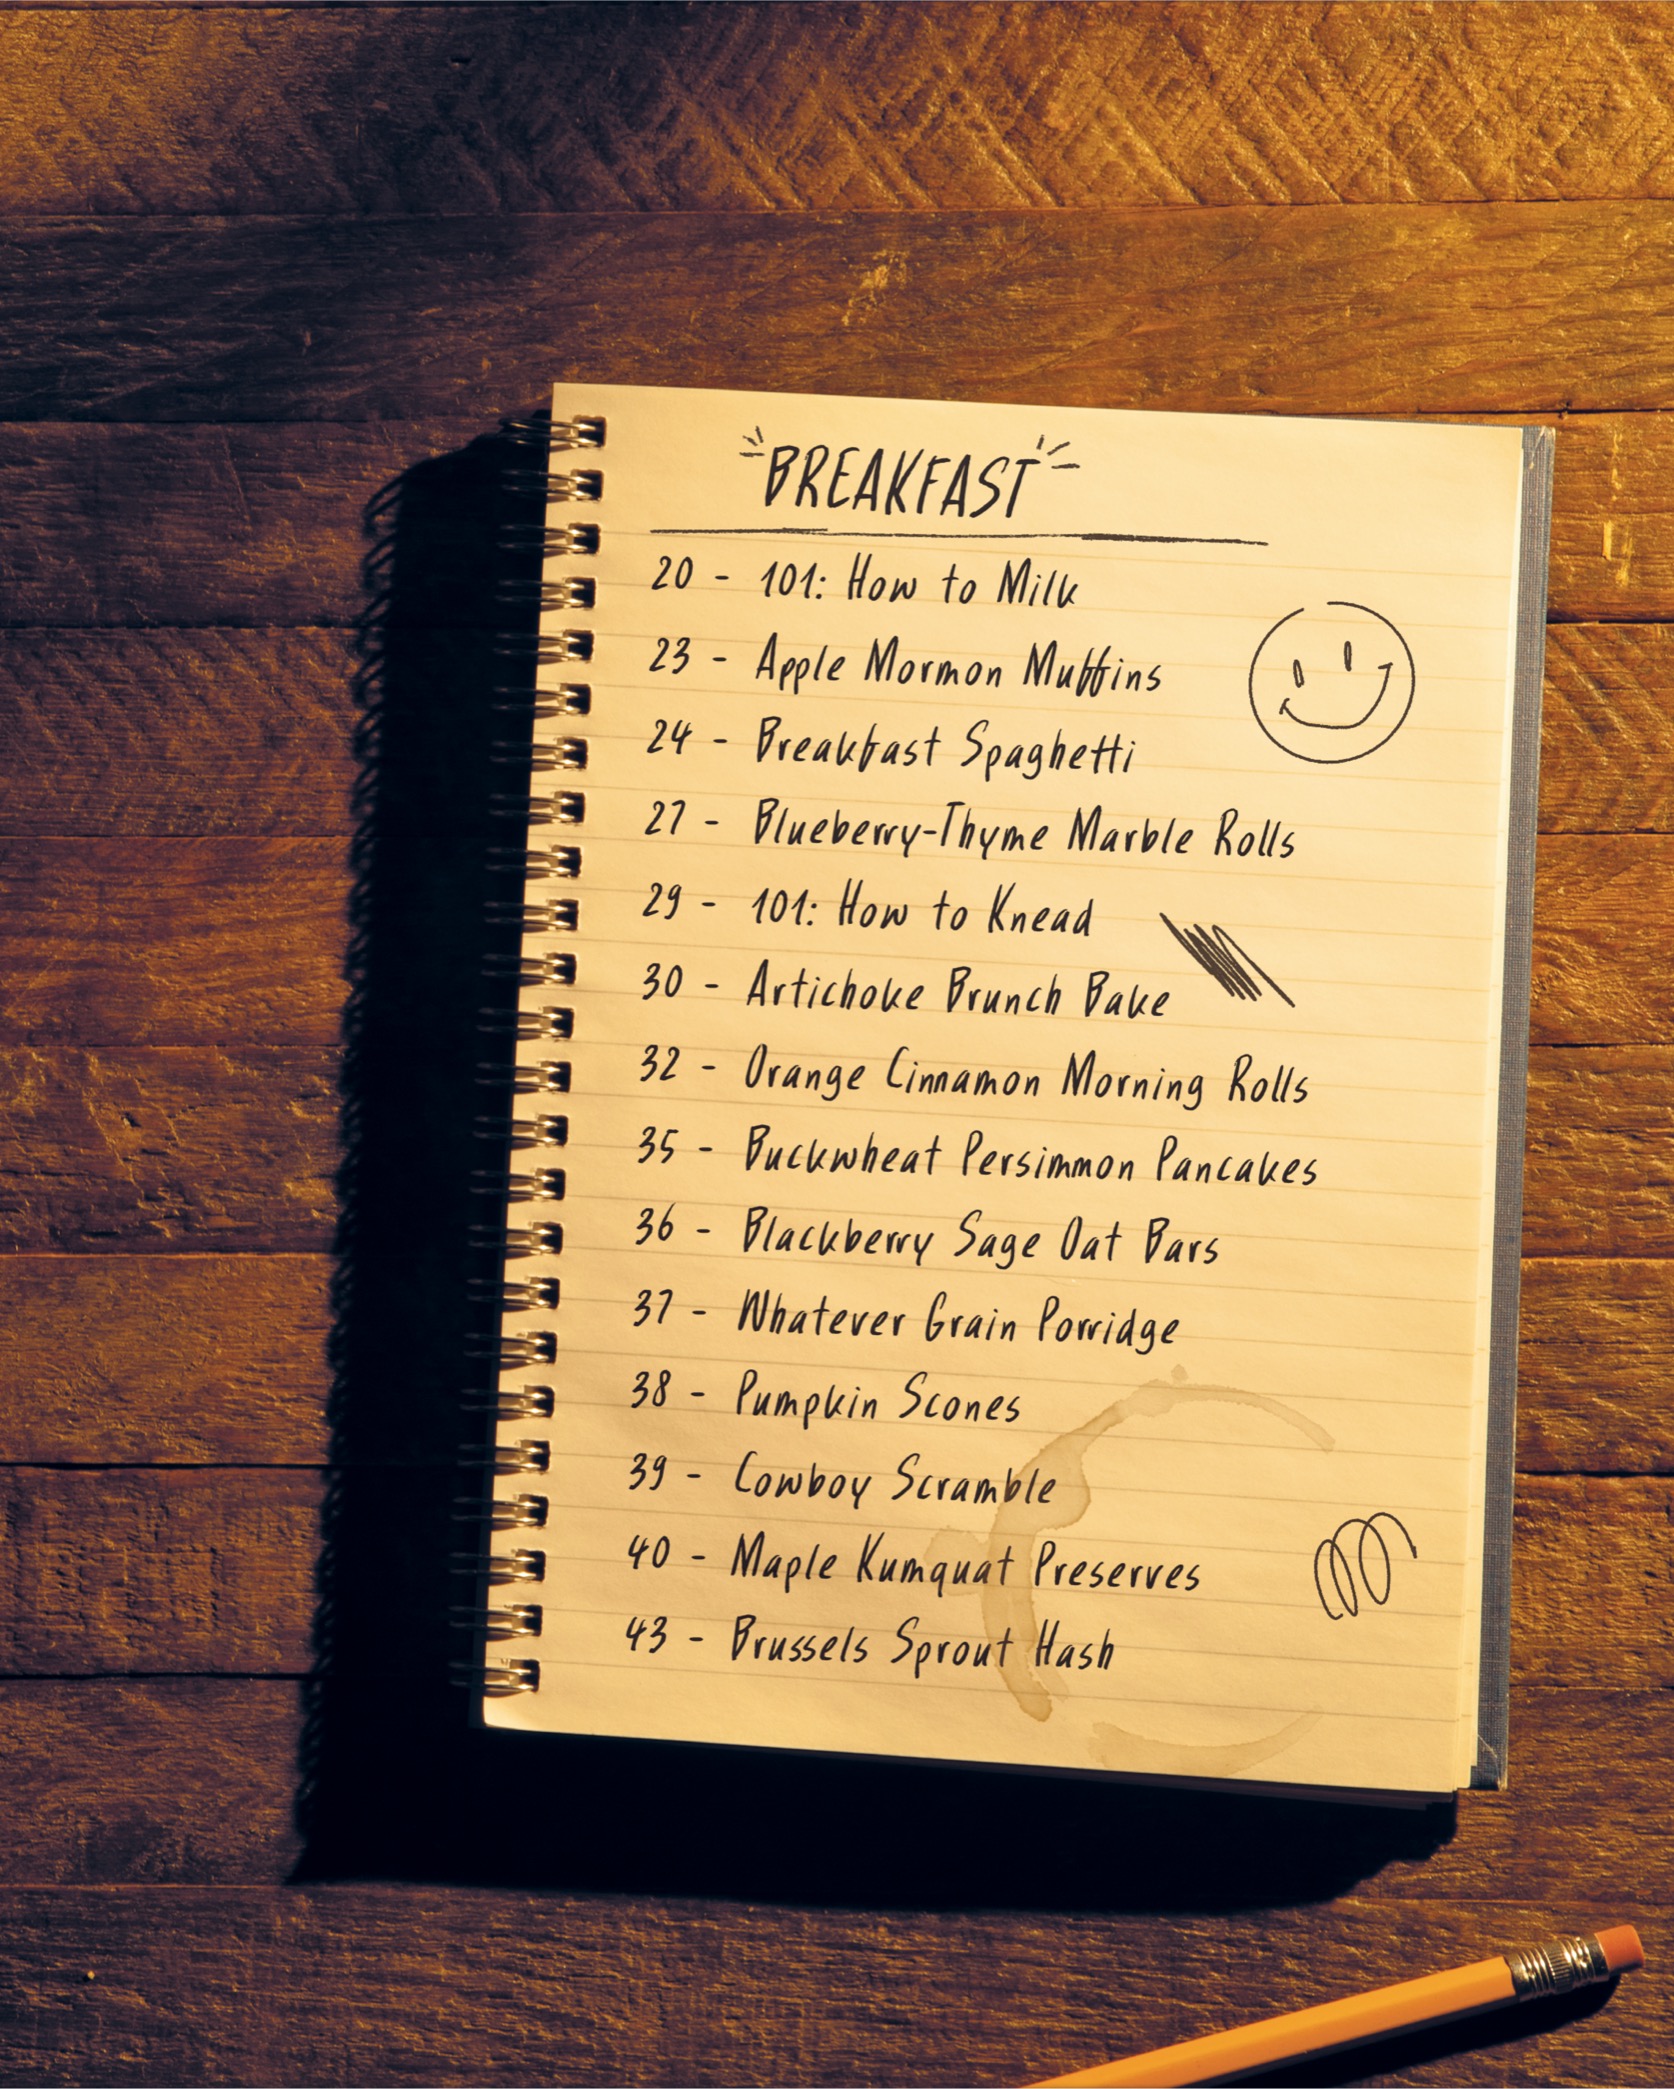 BREAKFAST
20 - 101: How to Milk
23 - Apple Mormon Muffins
24 - Breakfast Spaghetti
27 - Blueberry-Thyme Marble Rolls
29 - 101: How to Knead
30 - Artichoke Brunch Bake
32 - Orange Cinnamon Morning Rolls
35 - Buckwheat Persimmon Pancakes
36 - Blackberry Sage Oat Bars
37 - Whatever Grain Porridge
38 - Pumpkin Scones
39 - Cowboy Scramble
40 - Maple Kumquat Preserves
43 - Brussels Sprout Hash